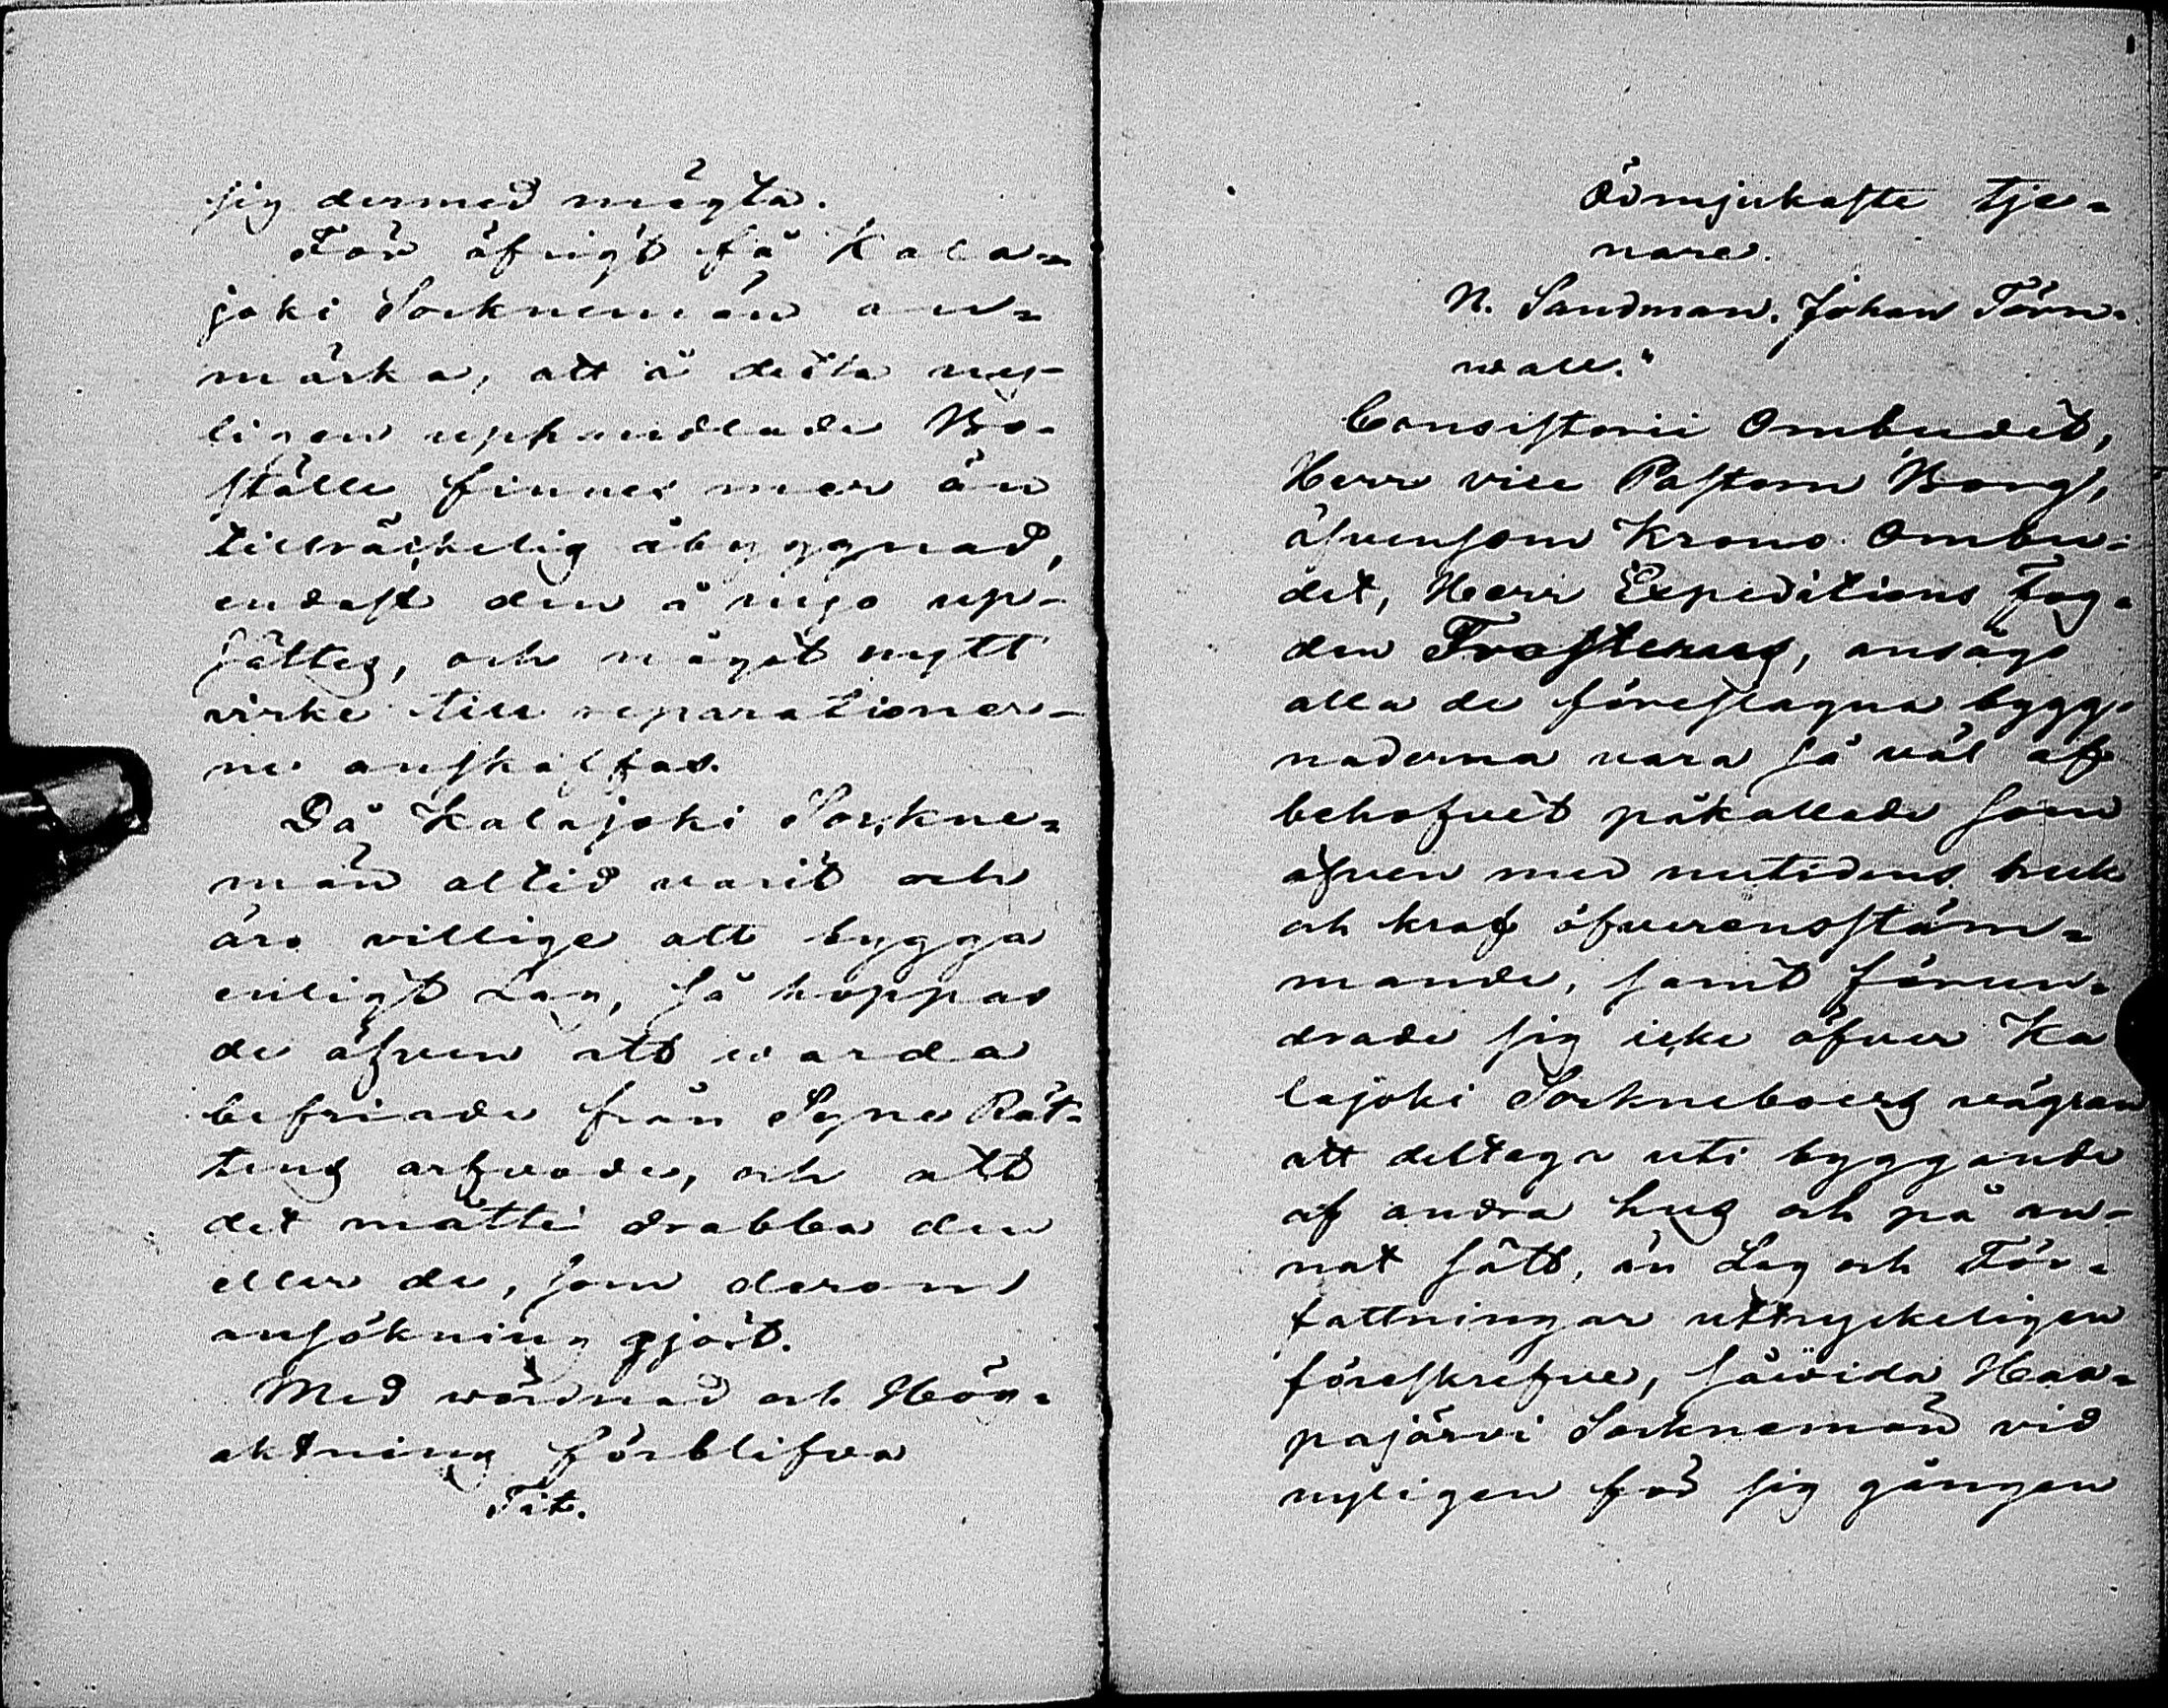 sig dermed nögta.
För öfrigt få Kala=
joki Socknemän an=
märka, att å detta ny-
ligen uphandlade Bo-
ställe finnes mer än
tillräckelig åbyggnad,
endast den å nyo up-
sättes, och något nytt
virke till reparationer-
ne anskaffas.
Då Kalajoki Sockne=
män altid varit och
äro villige att bygga
enligt Lag, så hoppas
de äfven att warda
befriade från Syne Rät-
tens arfvode, och att
det måtte drabba den
eller de, som derom
ansökning gjort.
Med wördnad och Hög-
aktning förblifva
Tit.
Ödmjukaste tje=
nare.
N. Sandman. Johan Törn-
wall."
Consistorii Ombudet,
Herr vice Pastorn Borg,
äfvensom Krono Ombu-
det, Herr Expeditions Fog-
den Frosterus, ansågo
alla de föreslagna bygg-
naderna vara så väl af
behofvet påkallade som
äfven med nutidens bruk
och kraf öfverensstäm=
mande, samt förun-
drade sig icke öfver Ka
lajoki Sockneboers vägran
att deltaga uti byggande
af andra hus och på an-
nat sätt, än Lag och För-
fattningar uttryckeligen
föreskrefve, såvida Haa-
pajärvi Socknemän vid
nyligen för sig gången